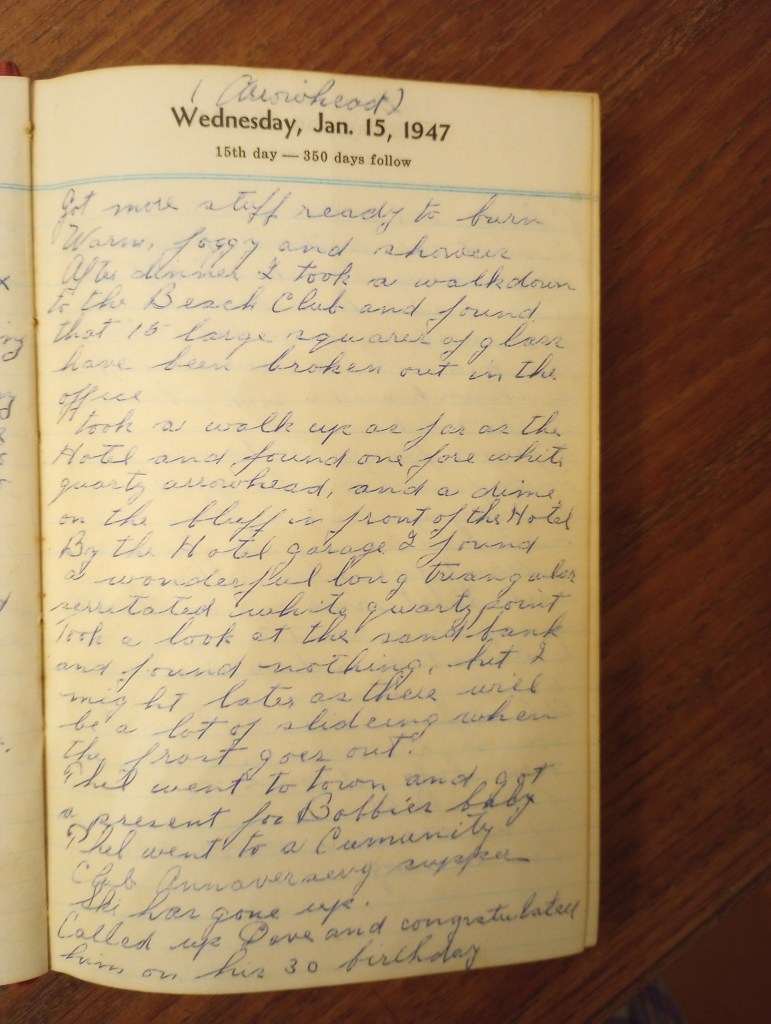 (Arrowhead)
Wednesday, Jan. 15, 1947
15th day — 350 days follow
Got more stuff ready to burn
Warm, foggy and showers
After dinner I took a walk down
to the Beach Club and found
that 15 large squares of glass
have been broken out in the
office
Took a walk up as far as the
Hotel and found one fore white
quartz arrowhead, and a dime
on the bluff in front of the Hotel
By the Hotel garage I found
a wonderful long triangular
serrtated white quartz point
Took a look at the sand bank
and found nothing, but I
might later as there will
be a lot of slideing when
the frost goes out.
Phil went to town and got
a present for Bobbies baby
Phil went to a Cumunity
Club Annaversery supper
Ski has gone up.
Called up Dave and congratulated
him on his 30 birthday